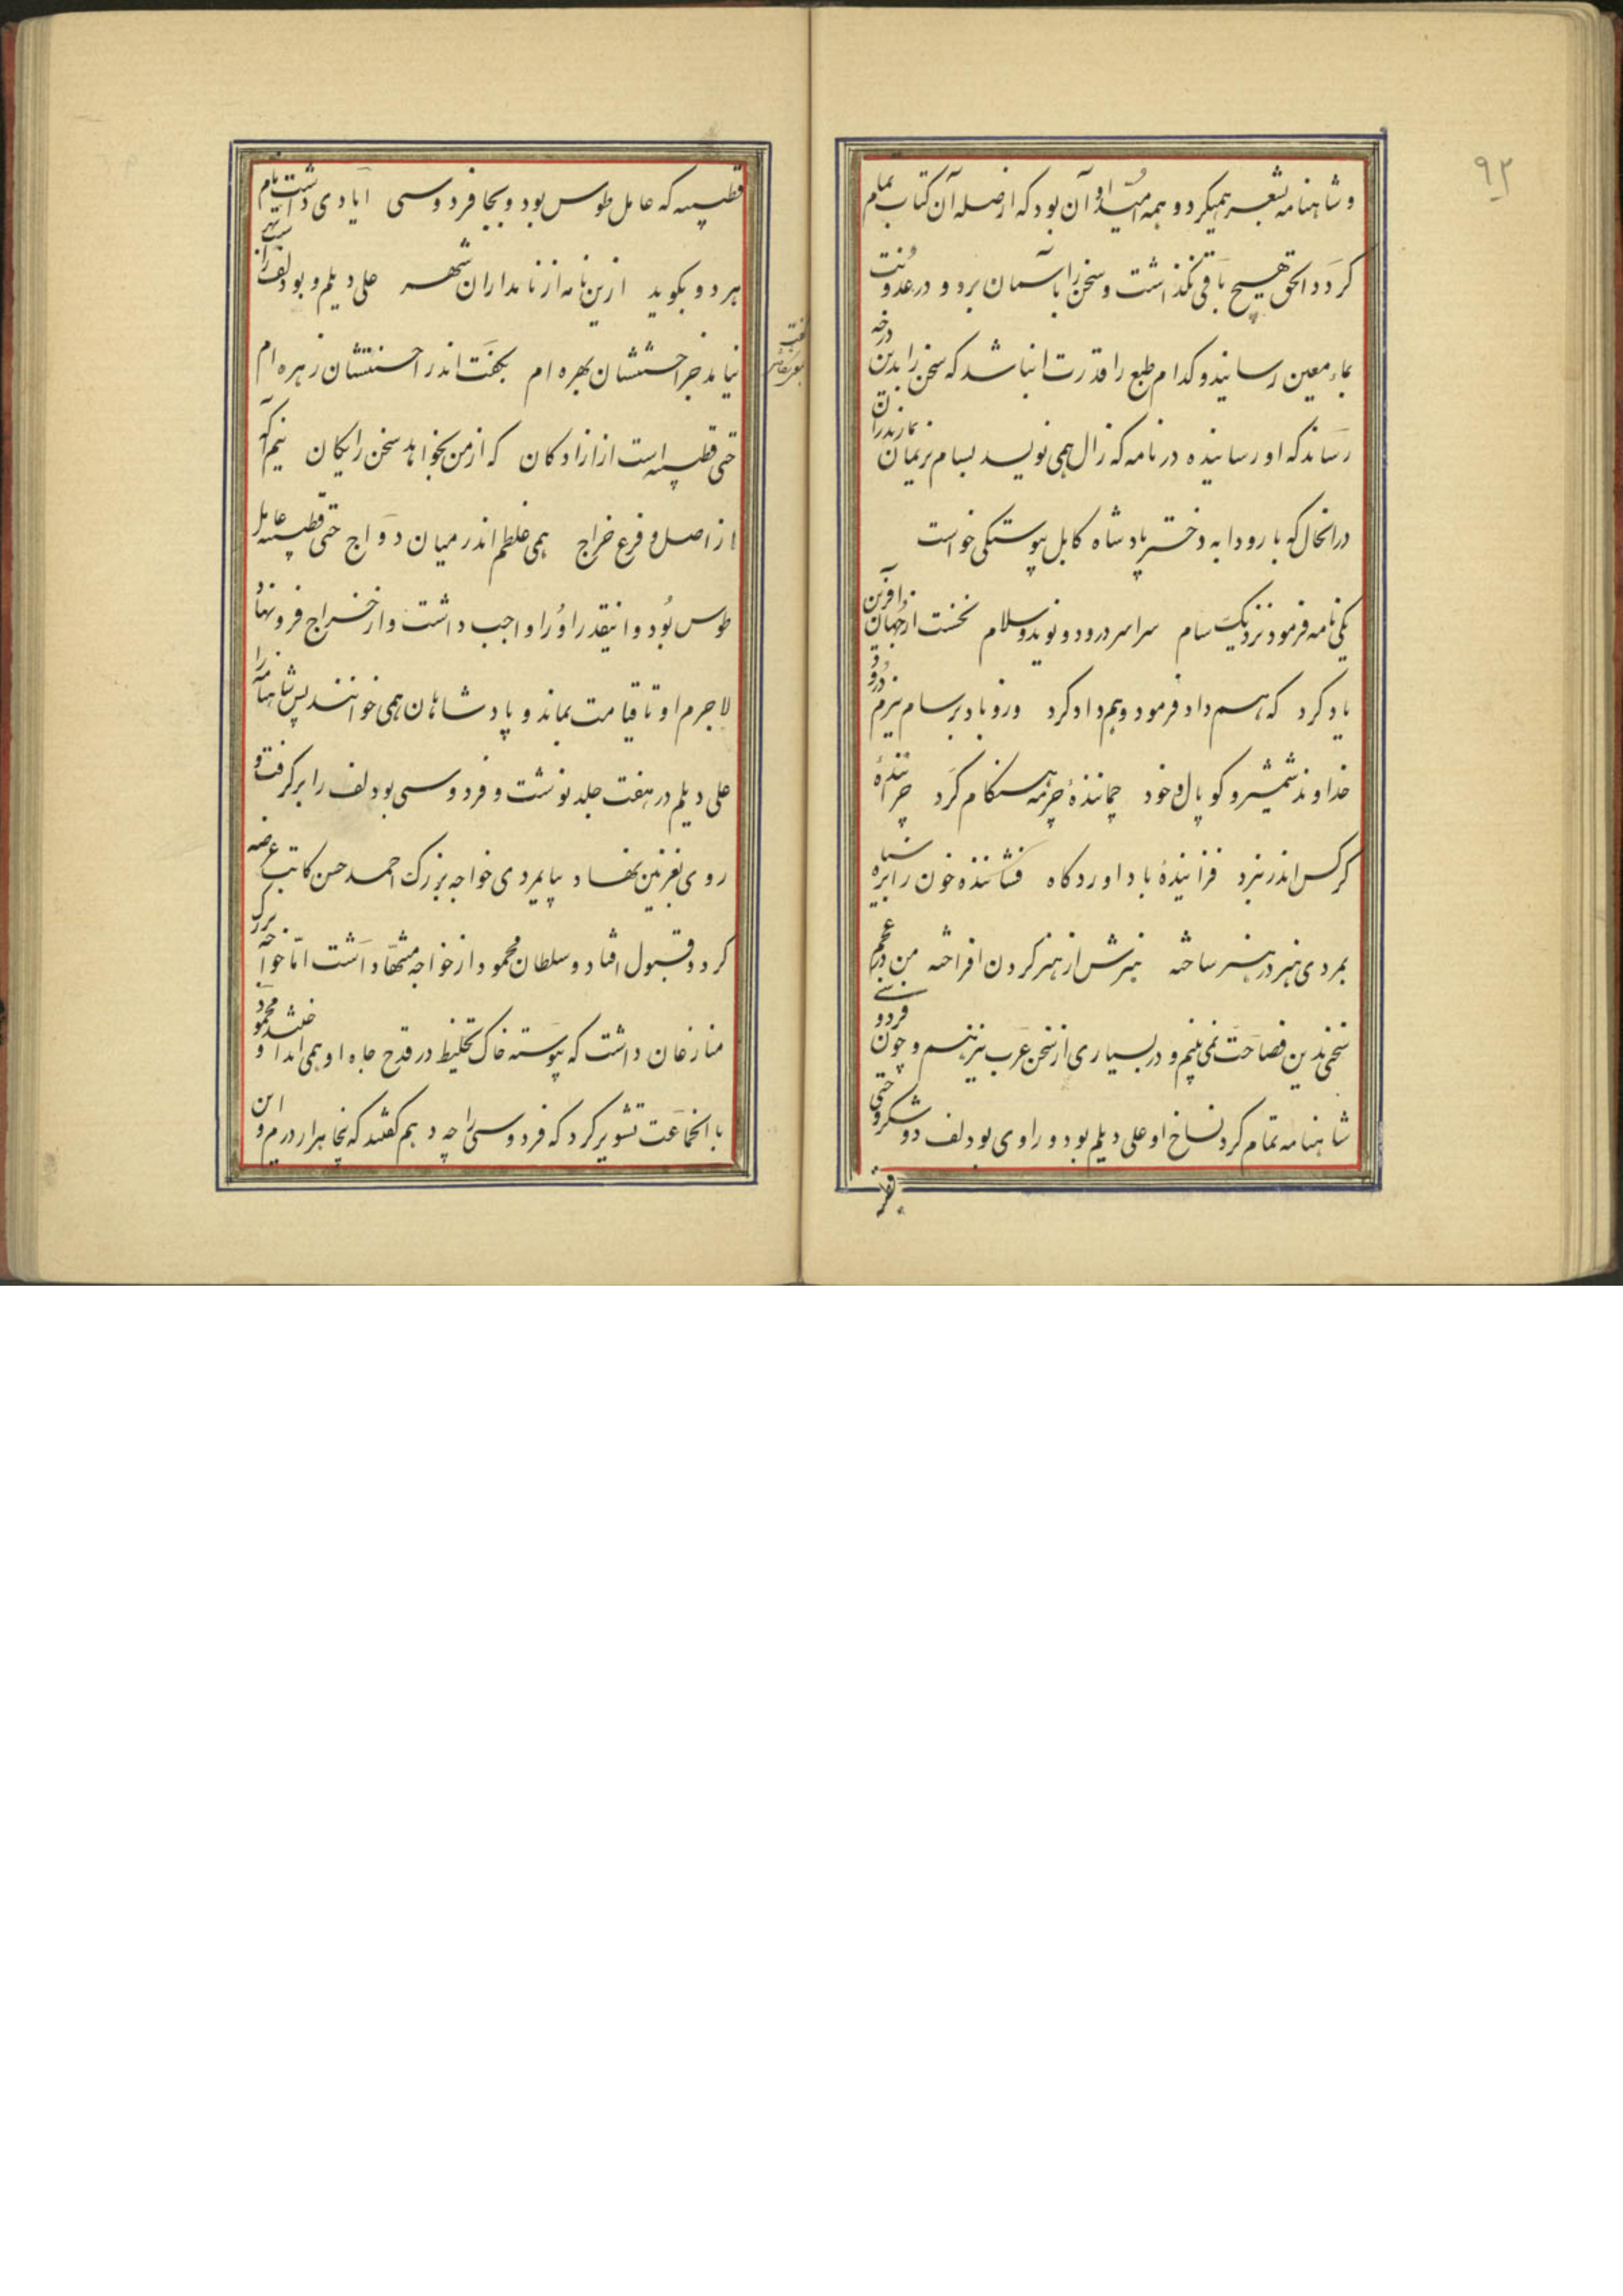 ۹۲
و شاهنامه بشعر همیکرد و همه امید او آن بود که از صله آن کتاب تمام
کرد و الحق هیچ باقی نگذاشت و سخن را بآسمان برد و در عذوبت
بماء معین رسانید و کدام طبع را قدرت انباشد که سخن را بدین درجه
رساند که او رسانیده در نامه که زال همی نویسد بسام نریمان بمازندران
در انحال که با رودابه دختر پادشاه کابل پیوستگی خواست
یکی نامه فرمود نزدیک سام سراسر درود و نوید و سلام نخست از جهان آفرین
یاد کرد که هم داد فرمود و هم داد کرد وزو باد بر سام نیرم درود
خداوند شمشیر و کوپال و خود چمانندهٔ چرمه هنگام گرد چرانندهٔ
کرکس اندر نبرد فزانیدهٔ باد اوردکاه فشانندهٔ خون را بر سیاه
بمردی هنر در هنر ساخته هنرش از هنر گردن افراخته من در عجم
سخنی بدین فصاحت نمی بینم و در بسیاری از سخن عرب نیز هم و چون فردوسی
شاهنامه تمام کرد نساخ او علی دیلم بود و راوی بودلف و وشکرو حتی
قطیبه
قطیبه که عامل طوس بود و بجا فردوسی ایادی داشت نام این
هر دو بگوید ازین نامه از نامداران شهر علی دیلم و بودلف راست بهر
نیامد جز احسنتشان بهره ام بکفت اندر احسنتشان زهره ام
حتی قطیبه است از ازادکان که از من نخواهد سخن رایکان نیم آگه
از اصل و فرع خراج همی غلطم اندر میان دواج حتی قطیبه عامل
طوس بود و اینقدر او را واجب داشت و از خراج فرو نهاد
لاجرم او تا قیامت بماند و پادشاهان همی خوانند پس شاهنامه را
علی دیلم در هفت جلد نوشت و فردوسی بودلف را برگرفت و
روی بغزنین نهاد بپایمردی خواجه بزرک احمد حسن کاتب عرضه
کرد و قبول افتاد و سلطان محمود از خواجه منتها داشت اما خواجه بزرک
منازعان داشت که پیوسته خاک تخلیط در قدح جاه او همی انداختند و محمود
با انجماعت تشویر کرد که فردوسی را چه دهم گفتند که پنجاه هزار درم و این